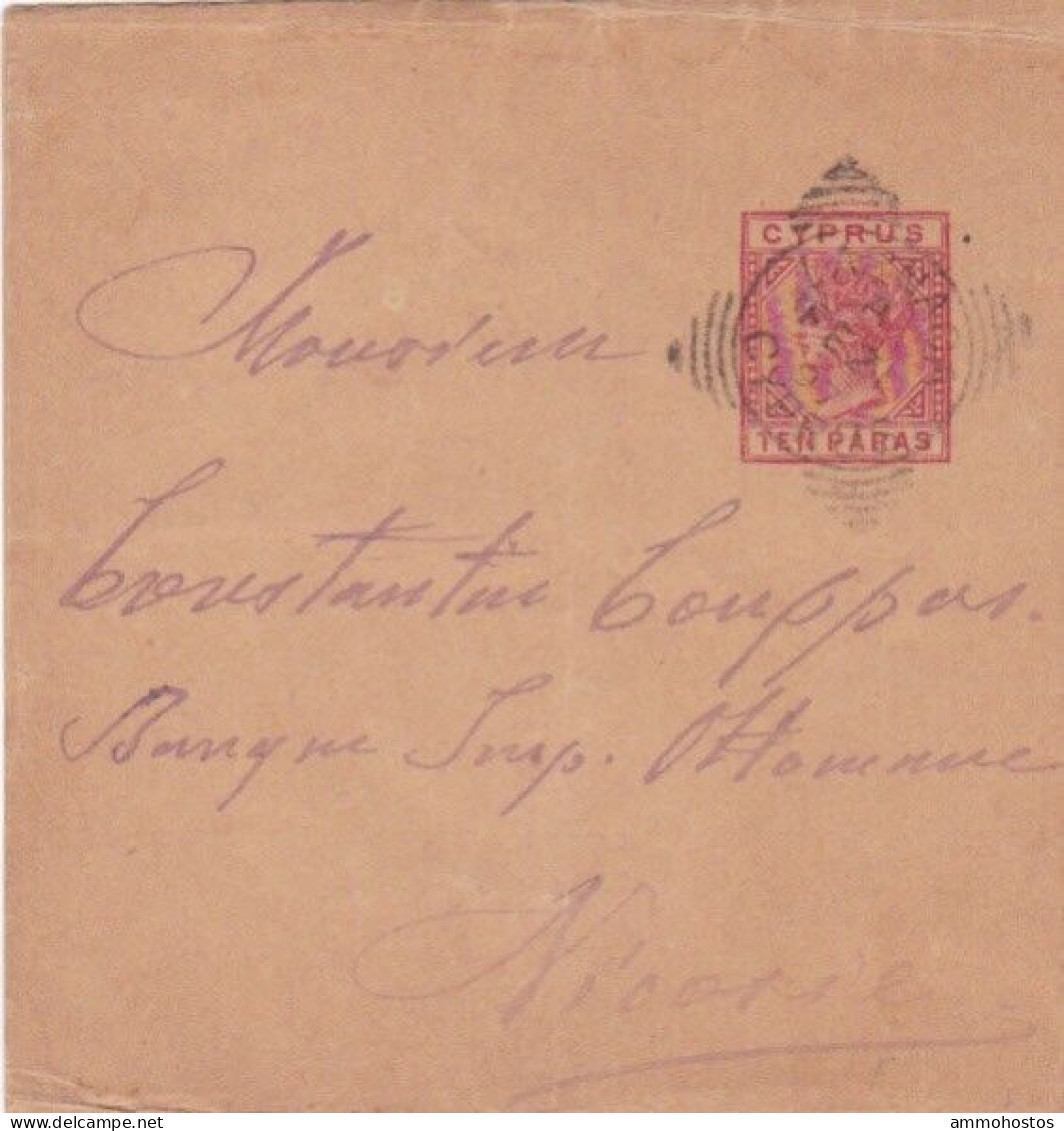 CYPRUS
TEN PARAS
Monsieur
Constantin Couppas.
Banque Imp. Ottomane
Nicosie
delcampe.net
ammohostos